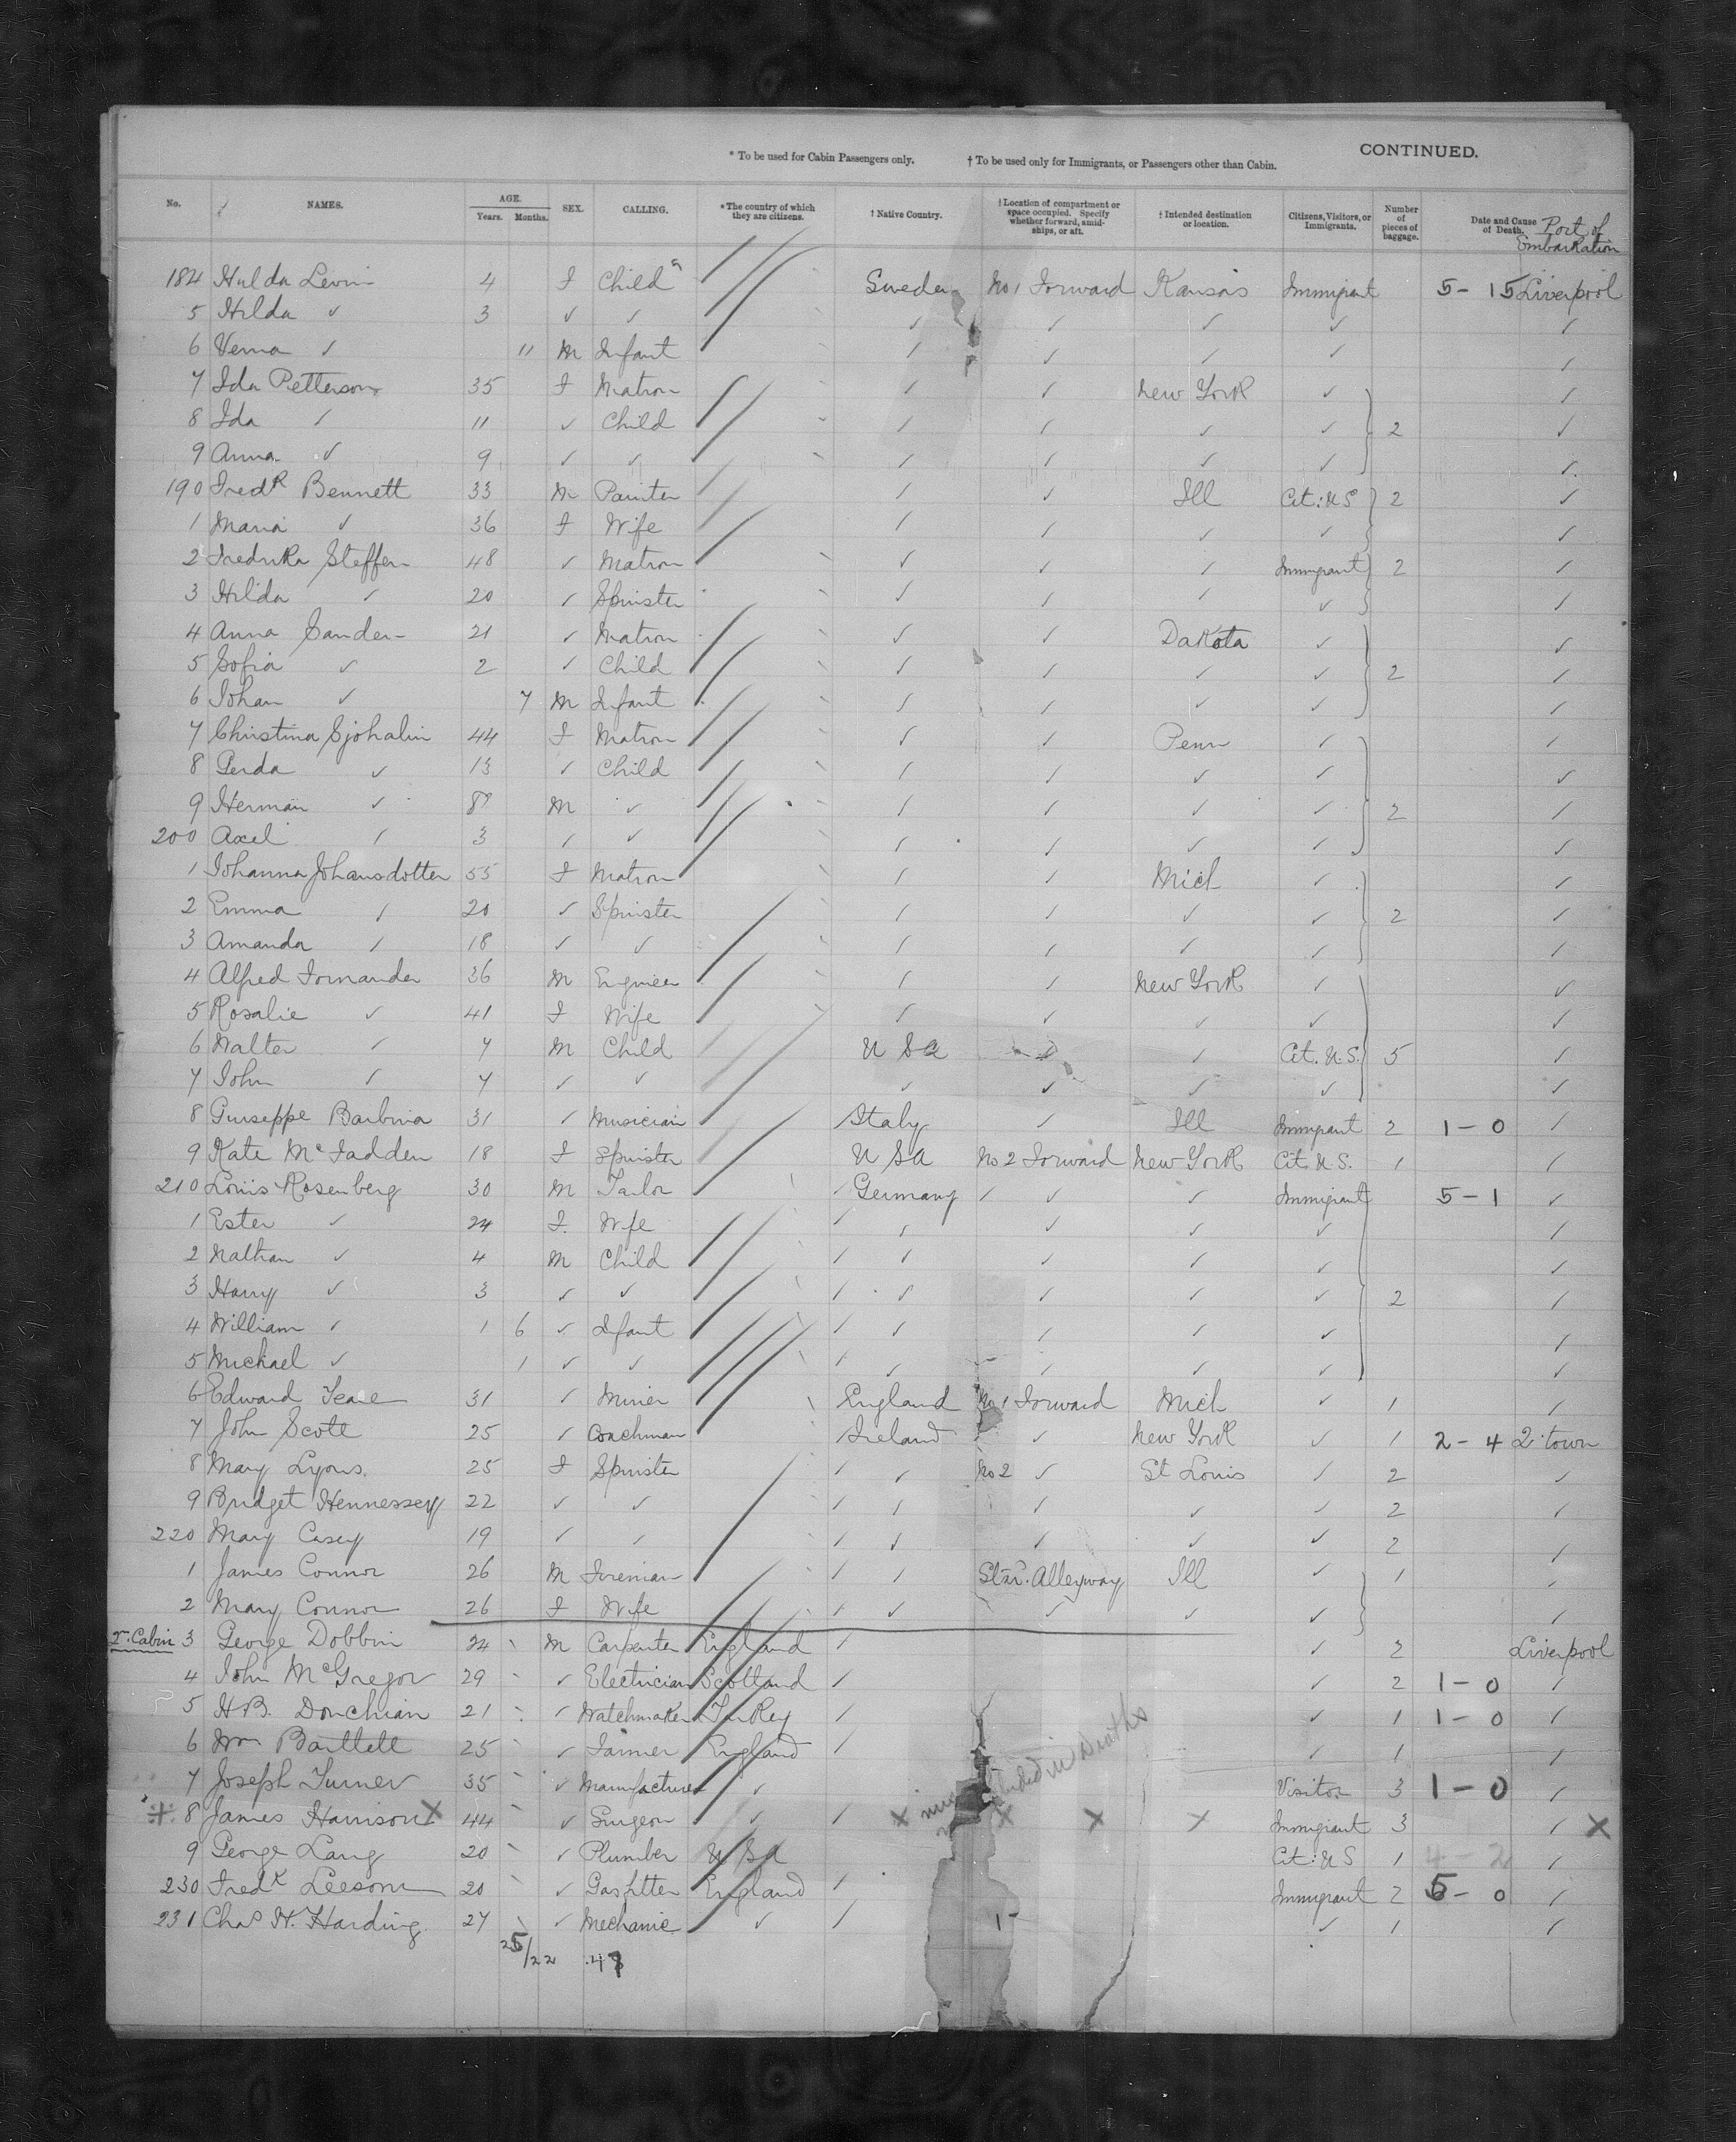 * To be used for Cabin Passengers only. † To be used only for Immigrants, or Passengers other than Cabin. CONTINUED.
No. NAMES. AGE. Years. Months. SEX. CALLING. * The country of which they are citizens. † Native Country. † Location of compartment or space occupied. Specify whether forward, amidships, or aft. † Intended destination or location. Citizens, Visitors, or Immigrants. Number of pieces of baggage. Date and Cause of Death. Port of Embarkation
184 Hulda Levin 4 F Child Sweden No 1 Forward Kansas Immigrant 5 - 15 Liverpool
5 Hilda ✓ 3 ✓ ✓ ✓ ✓ ✓ ✓ ✓
6 Verna ✓ 11 M Infant ✓ ✓ ✓ ✓ ✓
7 Ida Petterson 35 F Matron ✓ ✓ New York ✓ ✓
8 Ida ✓ 11 ✓ Child ✓ ✓ ✓ ✓ 2 ✓
9 Anna ✓ 9 ✓ ✓ ✓ ✓ ✓ ✓ ✓
190 Fredk Bennett 33 M Painter ✓ ✓ Ill Cit: U S 2 ✓
1 Maria ✓ 36 F Wife ✓ ✓ ✓ ✓ ✓
2 Fredrika Steffen 48 ✓ Matron ✓ ✓ ✓ Immigrant 2 ✓
3 Hilda ✓ 20 ✓ Spinster ✓ ✓ ✓ ✓ ✓
4 Anna Sanden 21 ✓ Matron ✓ ✓ Dakota ✓ ✓
5 Sofia ✓ 2 ✓ Child ✓ ✓ ✓ ✓ 2 ✓
6 Johan ✓ 7 M Infant ✓ ✓ ✓ ✓ ✓
7 Christina Sjohalin 44 F Matron ✓ ✓ Penn ✓ ✓
8 Gerda ✓ 13 ✓ Child ✓ ✓ ✓ ✓ ✓
9 Herman ✓ 8 M ✓ ✓ ✓ ✓ ✓ 2 ✓
200 Axel ✓ 3 ✓ ✓ ✓ ✓ ✓ ✓ ✓
1 Johanna Johansdotter 55 F Matron ✓ ✓ Mich ✓ ✓
2 Emma ✓ 20 ✓ Spinster ✓ ✓ ✓ ✓ 2 ✓
3 Amanda ✓ 18 ✓ ✓ ✓ ✓ ✓ ✓ ✓
4 Alfred Fornander 36 M Engineer ✓ ✓ New York ✓ ✓
5 Rosalie ✓ 41 F Wife ✓ ✓ ✓ ✓ ✓
6 Walter ✓ 7 M Child U S A ✓ ✓ Cit. U.S. 5 ✓
7 John ✓ 7 ✓ ✓ ✓ ✓ ✓ ✓ ✓
8 Guiseppe Barbina 31 ✓ Musician Italy ✓ Ill Immigrant 2 1 - 0 ✓
9 Kate McFadden 18 F Spinster U S A No 2 Forward New York Cit. U.S. 1 ✓
210 Louis Rosenberg 30 M Tailor Germany ✓ ✓ Immigrant 5 - 1 ✓
1 Ester ✓ 24 F. Wife ✓ ✓ ✓ ✓
2 Nathan ✓ 4 M Child ✓ ✓ ✓ ✓ ✓
3 Harry ✓ 3 ✓ ✓ ✓ ✓ ✓ ✓ 2 ✓
4 William ✓ 1 6 ✓ Infant ✓ ✓ ✓ ✓ ✓
5 Michael ✓ 1 ✓ ✓ ✓ ✓ ✓ ✓ ✓
6 Edward Teare 31 ✓ Miner England No 1 Forward Mich ✓ 1 ✓
7 John Scott 25 ✓ Coachman Ireland ✓ New York ✓ 1 2 - 4 Q'town
8 Mary Lyons. 25 F Spinster ✓ No 2 ✓ St Louis ✓ 2 ✓
9 Bridget Hennessey 22 ✓ ✓ ✓ ✓ ✓ ✓ 2 ✓
220 Mary Casey 19 ✓ ✓ ✓ ✓ ✓ ✓ 2 ✓
1 James Connor 26 M Fireman ✓ Star. Alleyway Ill ✓ 1 ✓
2 Mary Connor 26 F Wife ✓ ✓ ✓ ✓ ✓
2. Cabin 3 George Dobbin 24 M Carpenter England ✓ 2 Liverpool
4 John McGregor 29 ✓ Electrician Scotland ✓ 2 1 - 0 ✓
5 H.B. Donchian 21 ✓ Watchmaker Turkey ✓ 1 1 - 0 ✓
6 Wm Bartlett 25 ✓ Farmer England ✓ 1 ✓
7 Joseph Turner 35 ✓ Manufacturer ✓ Visitor 3 1 - 0 ✓
8 James Harrison X 44 ✓ Surgeon ✓ X in Deaths X X X Immigrant 3 ✓ X
9 George Lang 20 ✓ Plumber U S A Cit: U S 1 4 - 2 ✓
230 Fredk Leesom 20 ✓ Gasfitter England Immigrant 2 5 - 0 ✓
231 Chas H. Harding 27 ✓ Mechanic ✓ 1 - ✓ 1 ✓
25/22